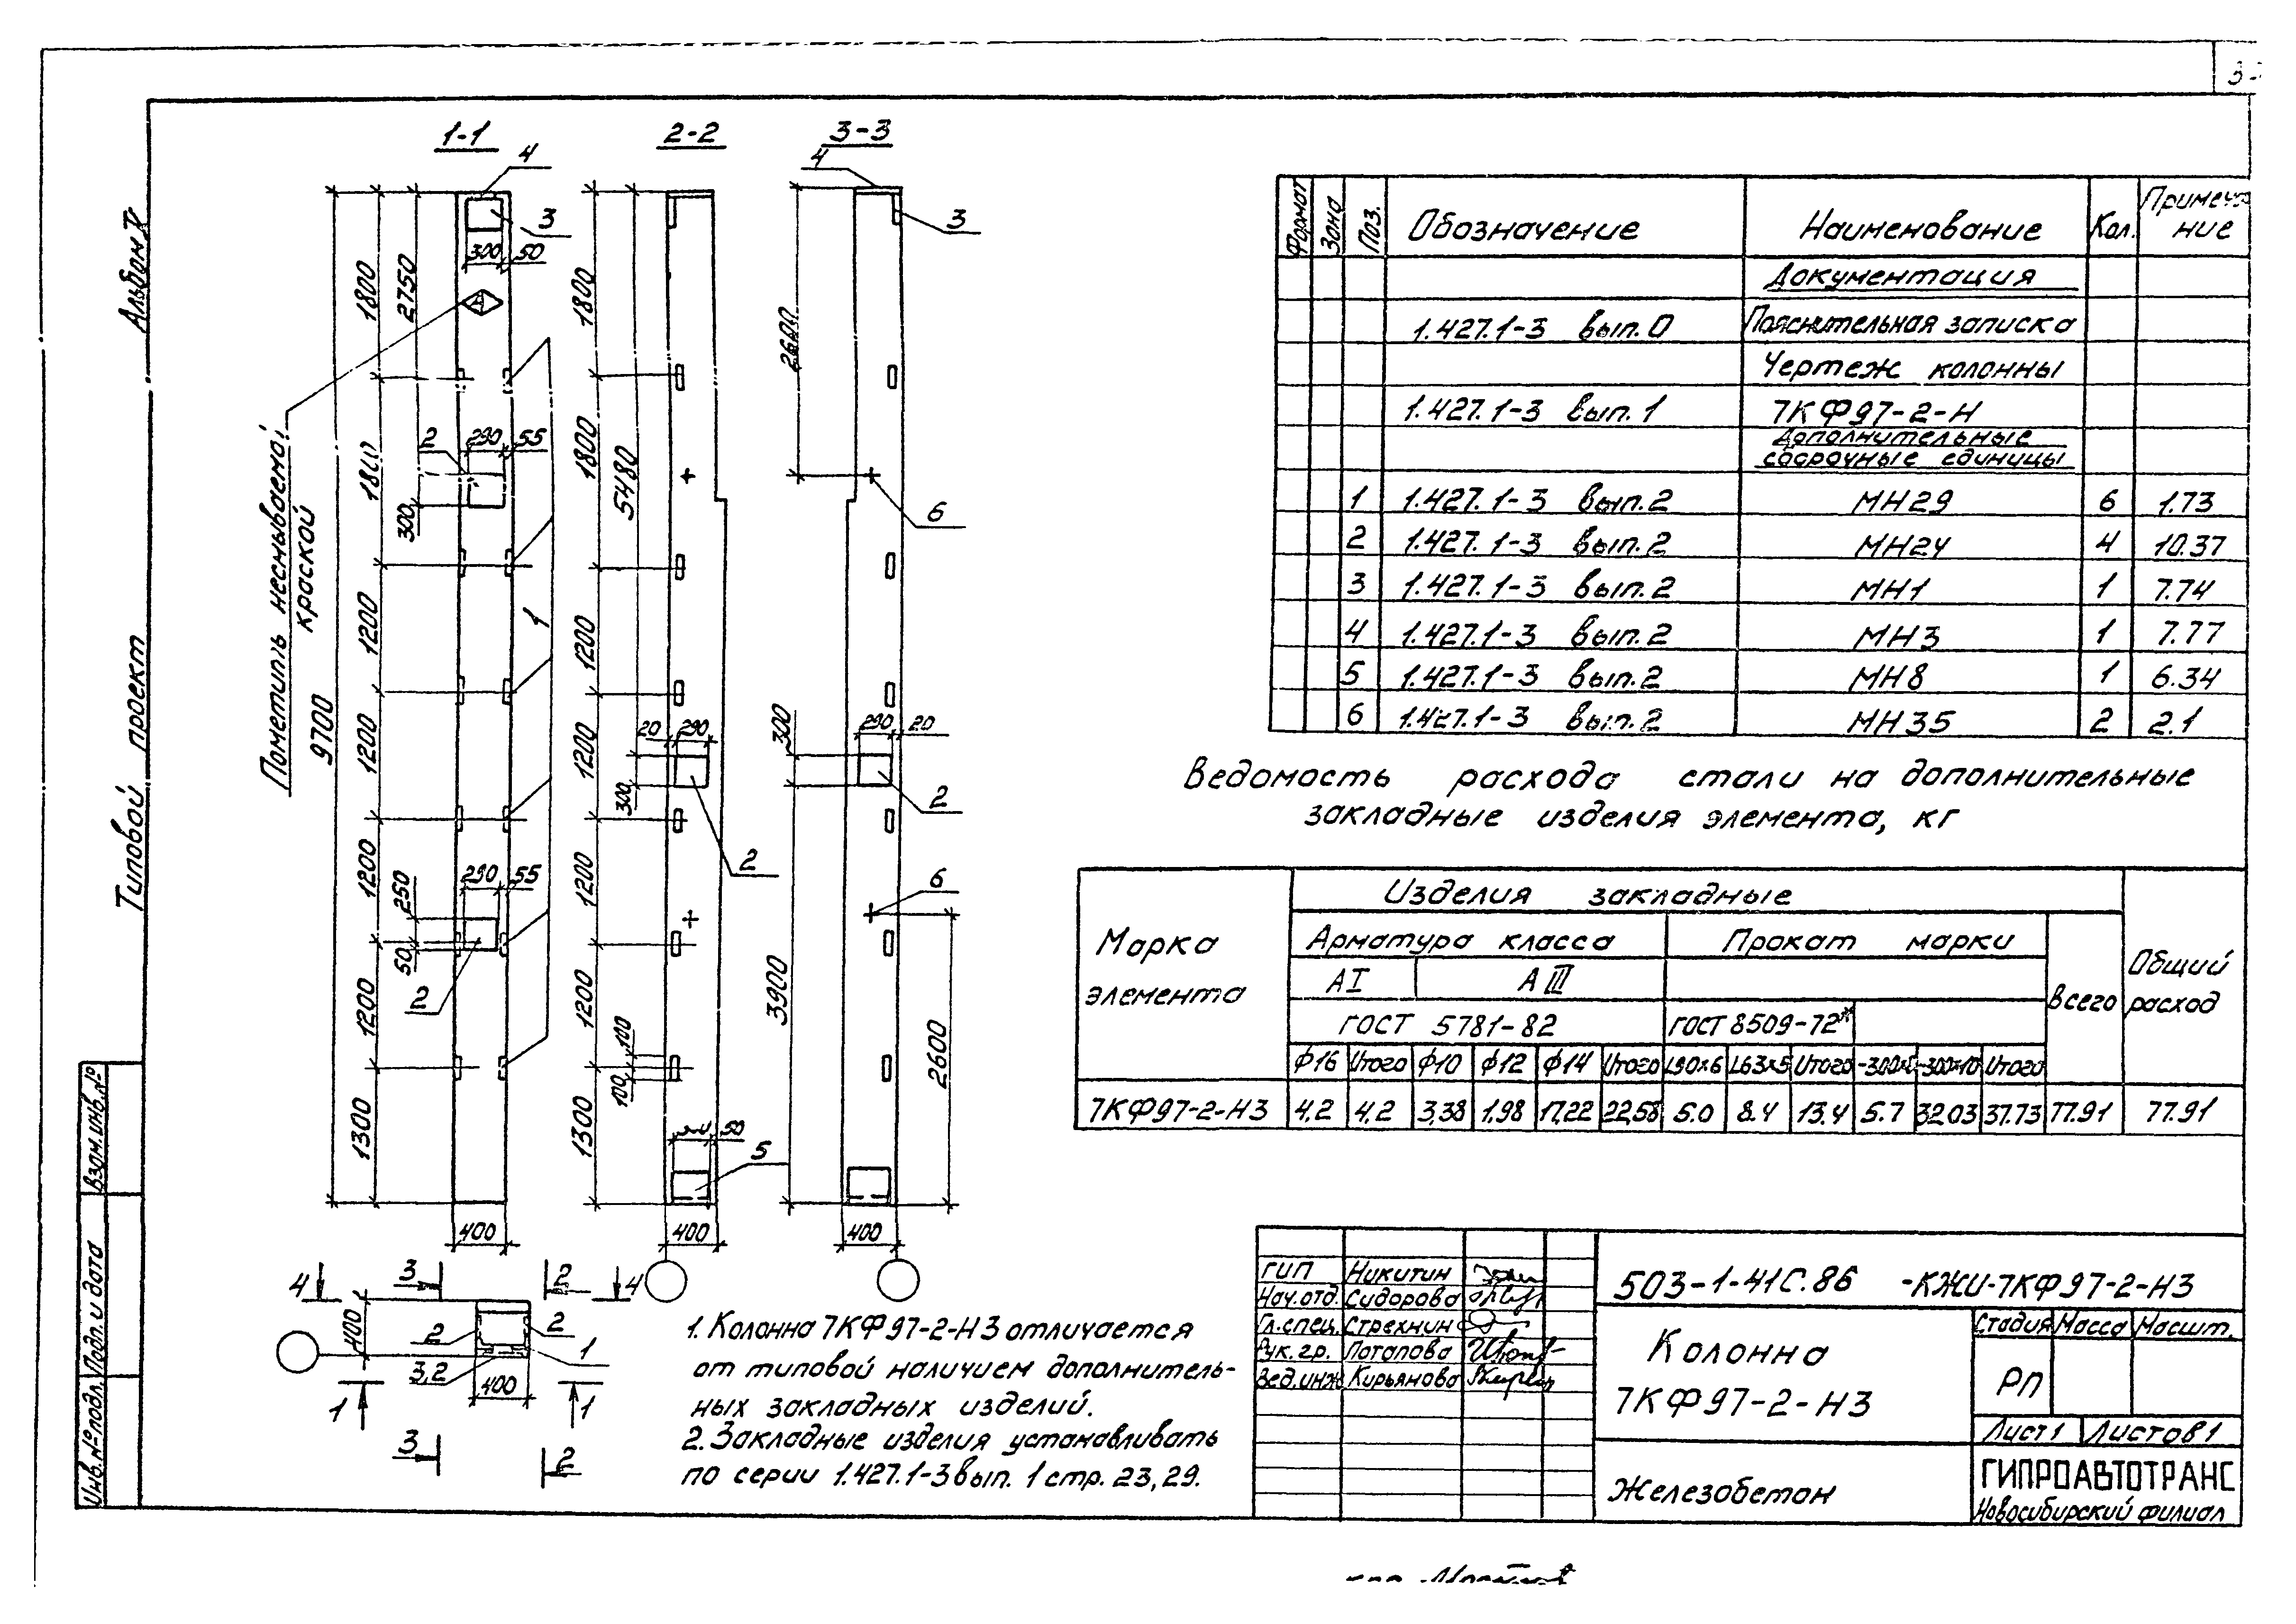 3-
Альбом IV
Типовой проект
1-1
2-2
3-3
4
3
300 50
Пометить несмываемой
краской
А
9700
1800
2750
1800
2
290 55
300
1200
1200
1
1200
250
290 55
50
2
1200
1300
400
1800
1800
5480
1200
20 290
1200
300
2
1200
1200
100
100
1300
50
5
400
4
3
2600
6
300
290 20
2
6
3900
2600
400
4
3
2
4
400
2
2
1
3,2
400
1
1
3
2
1. Колонна 7КФ97-2-Н3 отличается
от типовой наличием дополнитель-
ных закладных изделий.
2. Закладные изделия устанавливать
по серии 1.427.1-3 вып. 1 стр. 23, 29.
Формат Зона Поз. Обозначение Наименование Кол. Примеча
ние
Документация
1.427.1-3 вып.0 Пояснительная записка
Чертеж колонны
1.427.1-3 вып.1 7КФ97-2-Н
Дополнительные
сборочные единицы
1 1.427.1-3 вып.2 МН29 6 1.73
2 1.427.1-3 вып.2 МН24 4 10.37
3 1.427.1-3 вып.2 МН1 1 7.74
4 1.427.1-3 вып.2 МН3 1 7.77
5 1.427.1-3 вып.2 МН8 1 6.34
6 1.427.1-3 вып.2 МН35 2 2.1
Ведомость расхода стали на дополнительные
закладные изделия элемента, кг
Марка элемента
Изделия закладные
Общий расход
Арматура класса Прокат марки
Всего
АI АIII
ГОСТ 5781-82 ГОСТ 8509-72*
Ф16 Итого Ф10 Ф12 Ф14 Итого L90х6 L63х5 Итого -300х10 Итого
7КФ97-2-Н3 4,2 4,2 3,38 1,98 17,22 22,58 5.0 8.4 13,4 5.7 32.03 37.73 77.91 77.91
ГИП Никитин
Нач.отд. Сидорова
Гл.спец. Стрехнин
Рук. гр. Потапова
Вед.инж Кирьянова
503-1-41С.86 -КЖИ-7КФ97-2-Н3
Колонна
7КФ97-2-Н3
Стадия Масса Масшт.
РП
Лист 1 Листов 1
Железобетон
ГИПРОАВТОТРАНС
Новосибирский филиал
Взам.инв.№
Подп. и дата
Инв.№ подл.